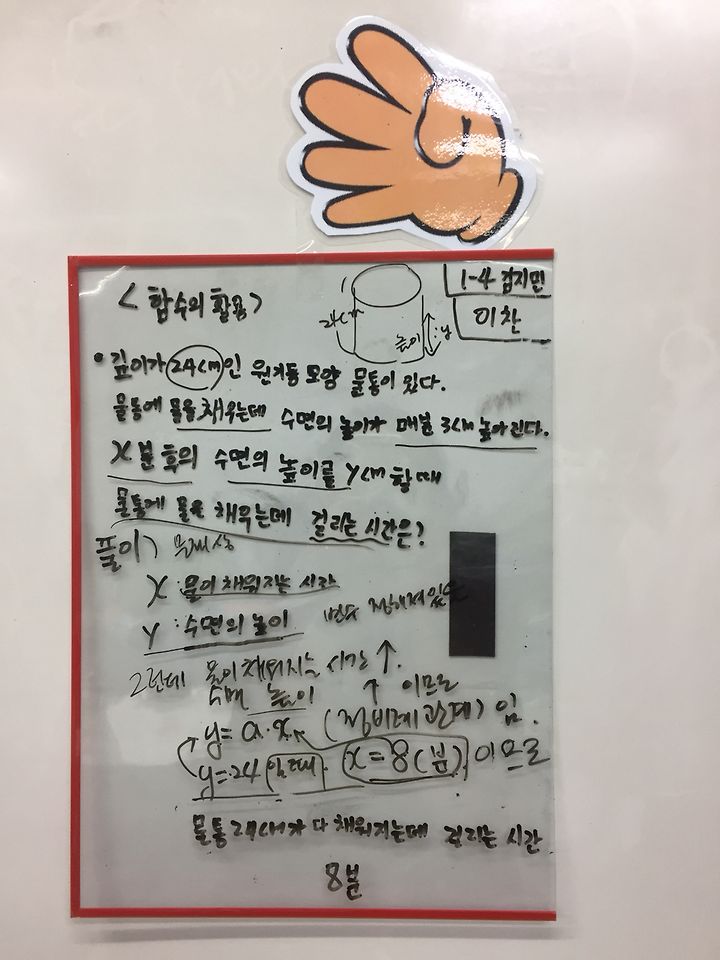 <함수의 활용>
1-4 김지민
이찬
24cm
높이
y
• 깊이가 24cm인 원기둥 모양 물통이 있다.
물통에 물을 채우는데 수면의 높이가 매분 3cm 높아진다.
x분 후의 수면의 높이를 ycm 할 때
물통에 물을 채우는데 걸리는 시간은?
풀이) 문제상
x : 물이 채워지는 시간
y : 수면의 높이 변수 정해져있
그런데 물이 채워지는 시간 ↑.
높이 ↑ 이므로
y = a·x (정비례 관계) 임.
y=24 일 때 x=8(분) 이므로
물통 24cm가 다 채워지는데 걸리는 시간
8분